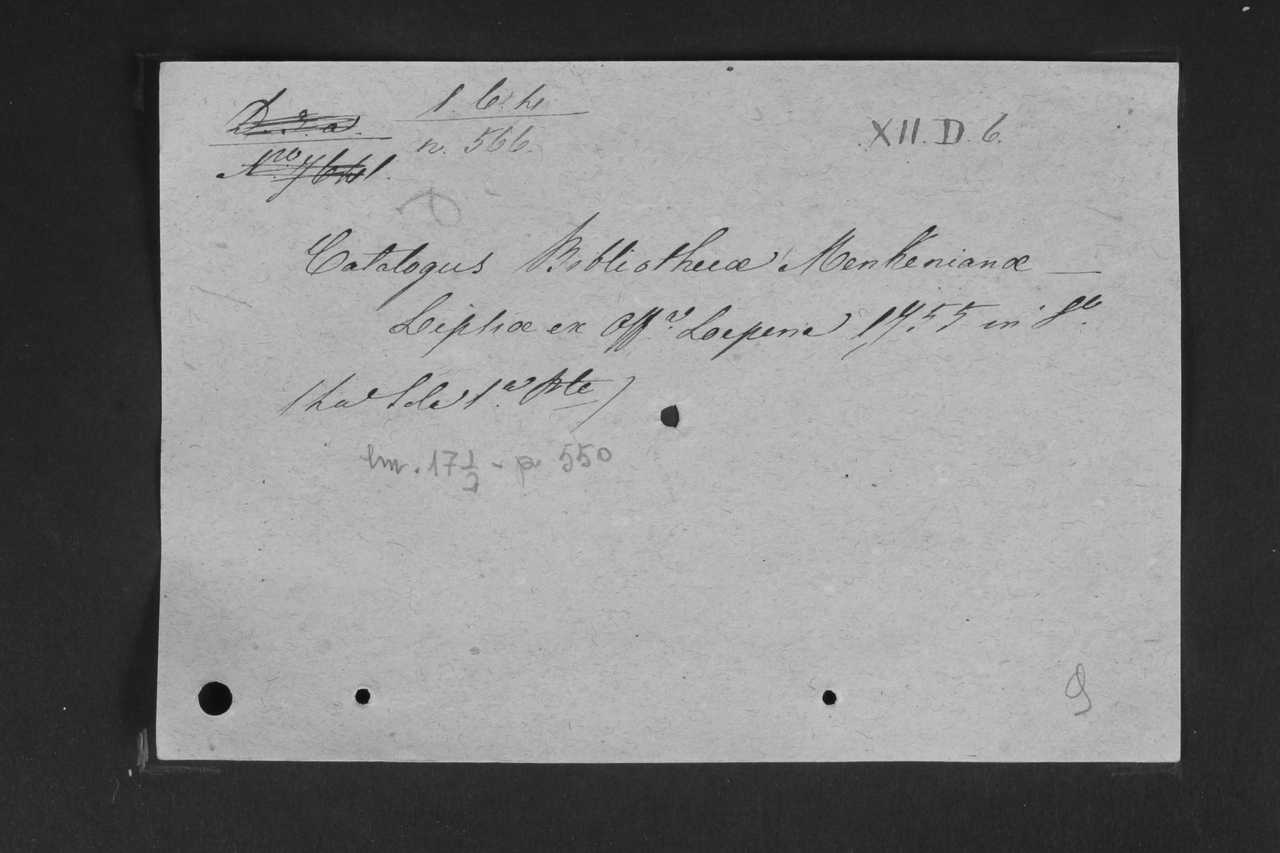 1. C. h.
n. 566.
XII. D. 6.
Catalogus Bibliothecæ Menkenianæ —
Lipsiæ ex Off.ª Loeperia 1755 in 8º.
(ha la 1.ª Pte)
cm. 17½ - p. 550